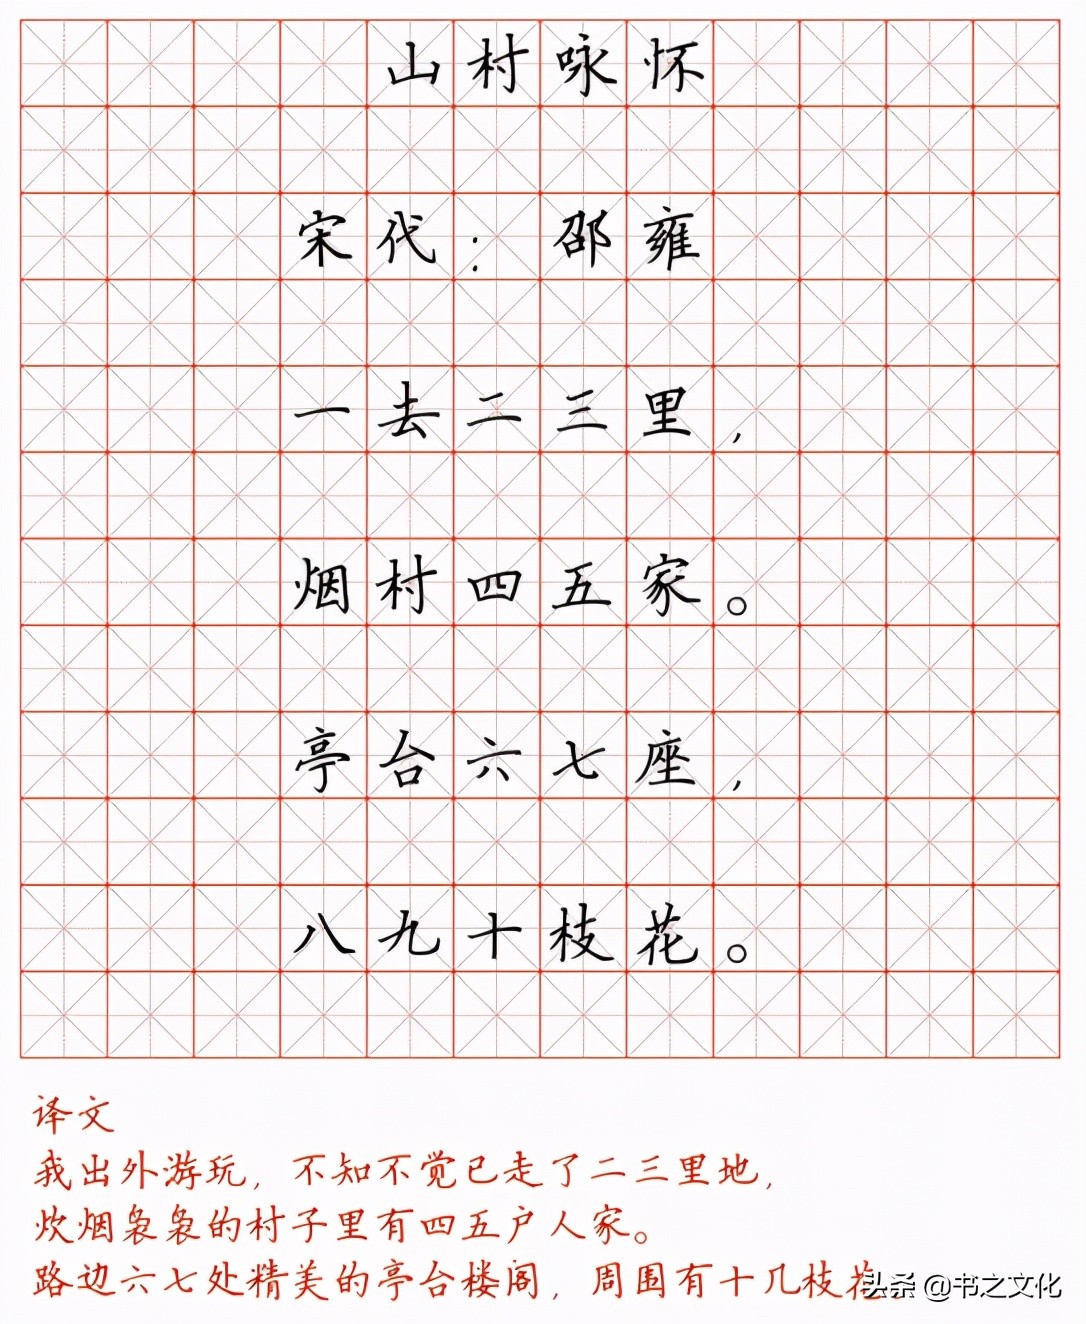 山村咏怀
宋代：邵雍
一去二三里，
烟村四五家。
亭台六七座，
八九十枝花。
译文
我出外游玩，不知不觉已走了二三里地，
炊烟袅袅的村子里有四五户人家。
路边六七处精美的亭台楼阁，周围有十几枝花
头条 @书之文化